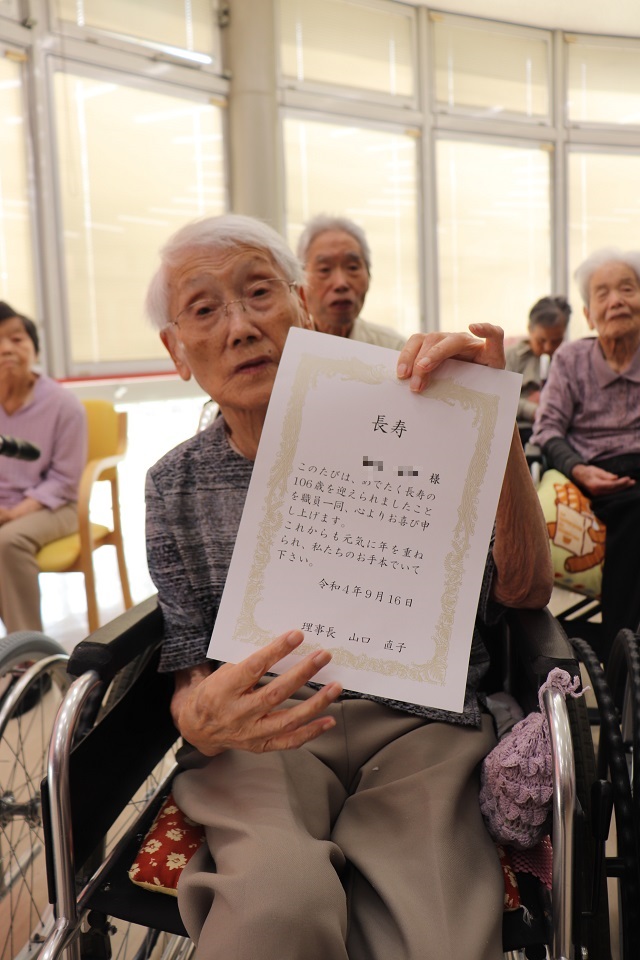 長寿
様
このたびは、めでたく長寿の
106歳を迎えられましたこと
を職員一同、心よりお喜び申
し上げます。
これからも元気に年を重ね
られ、私たちのお手本でいて
下さい。
令和4年9月16日
理事長 山口 直子